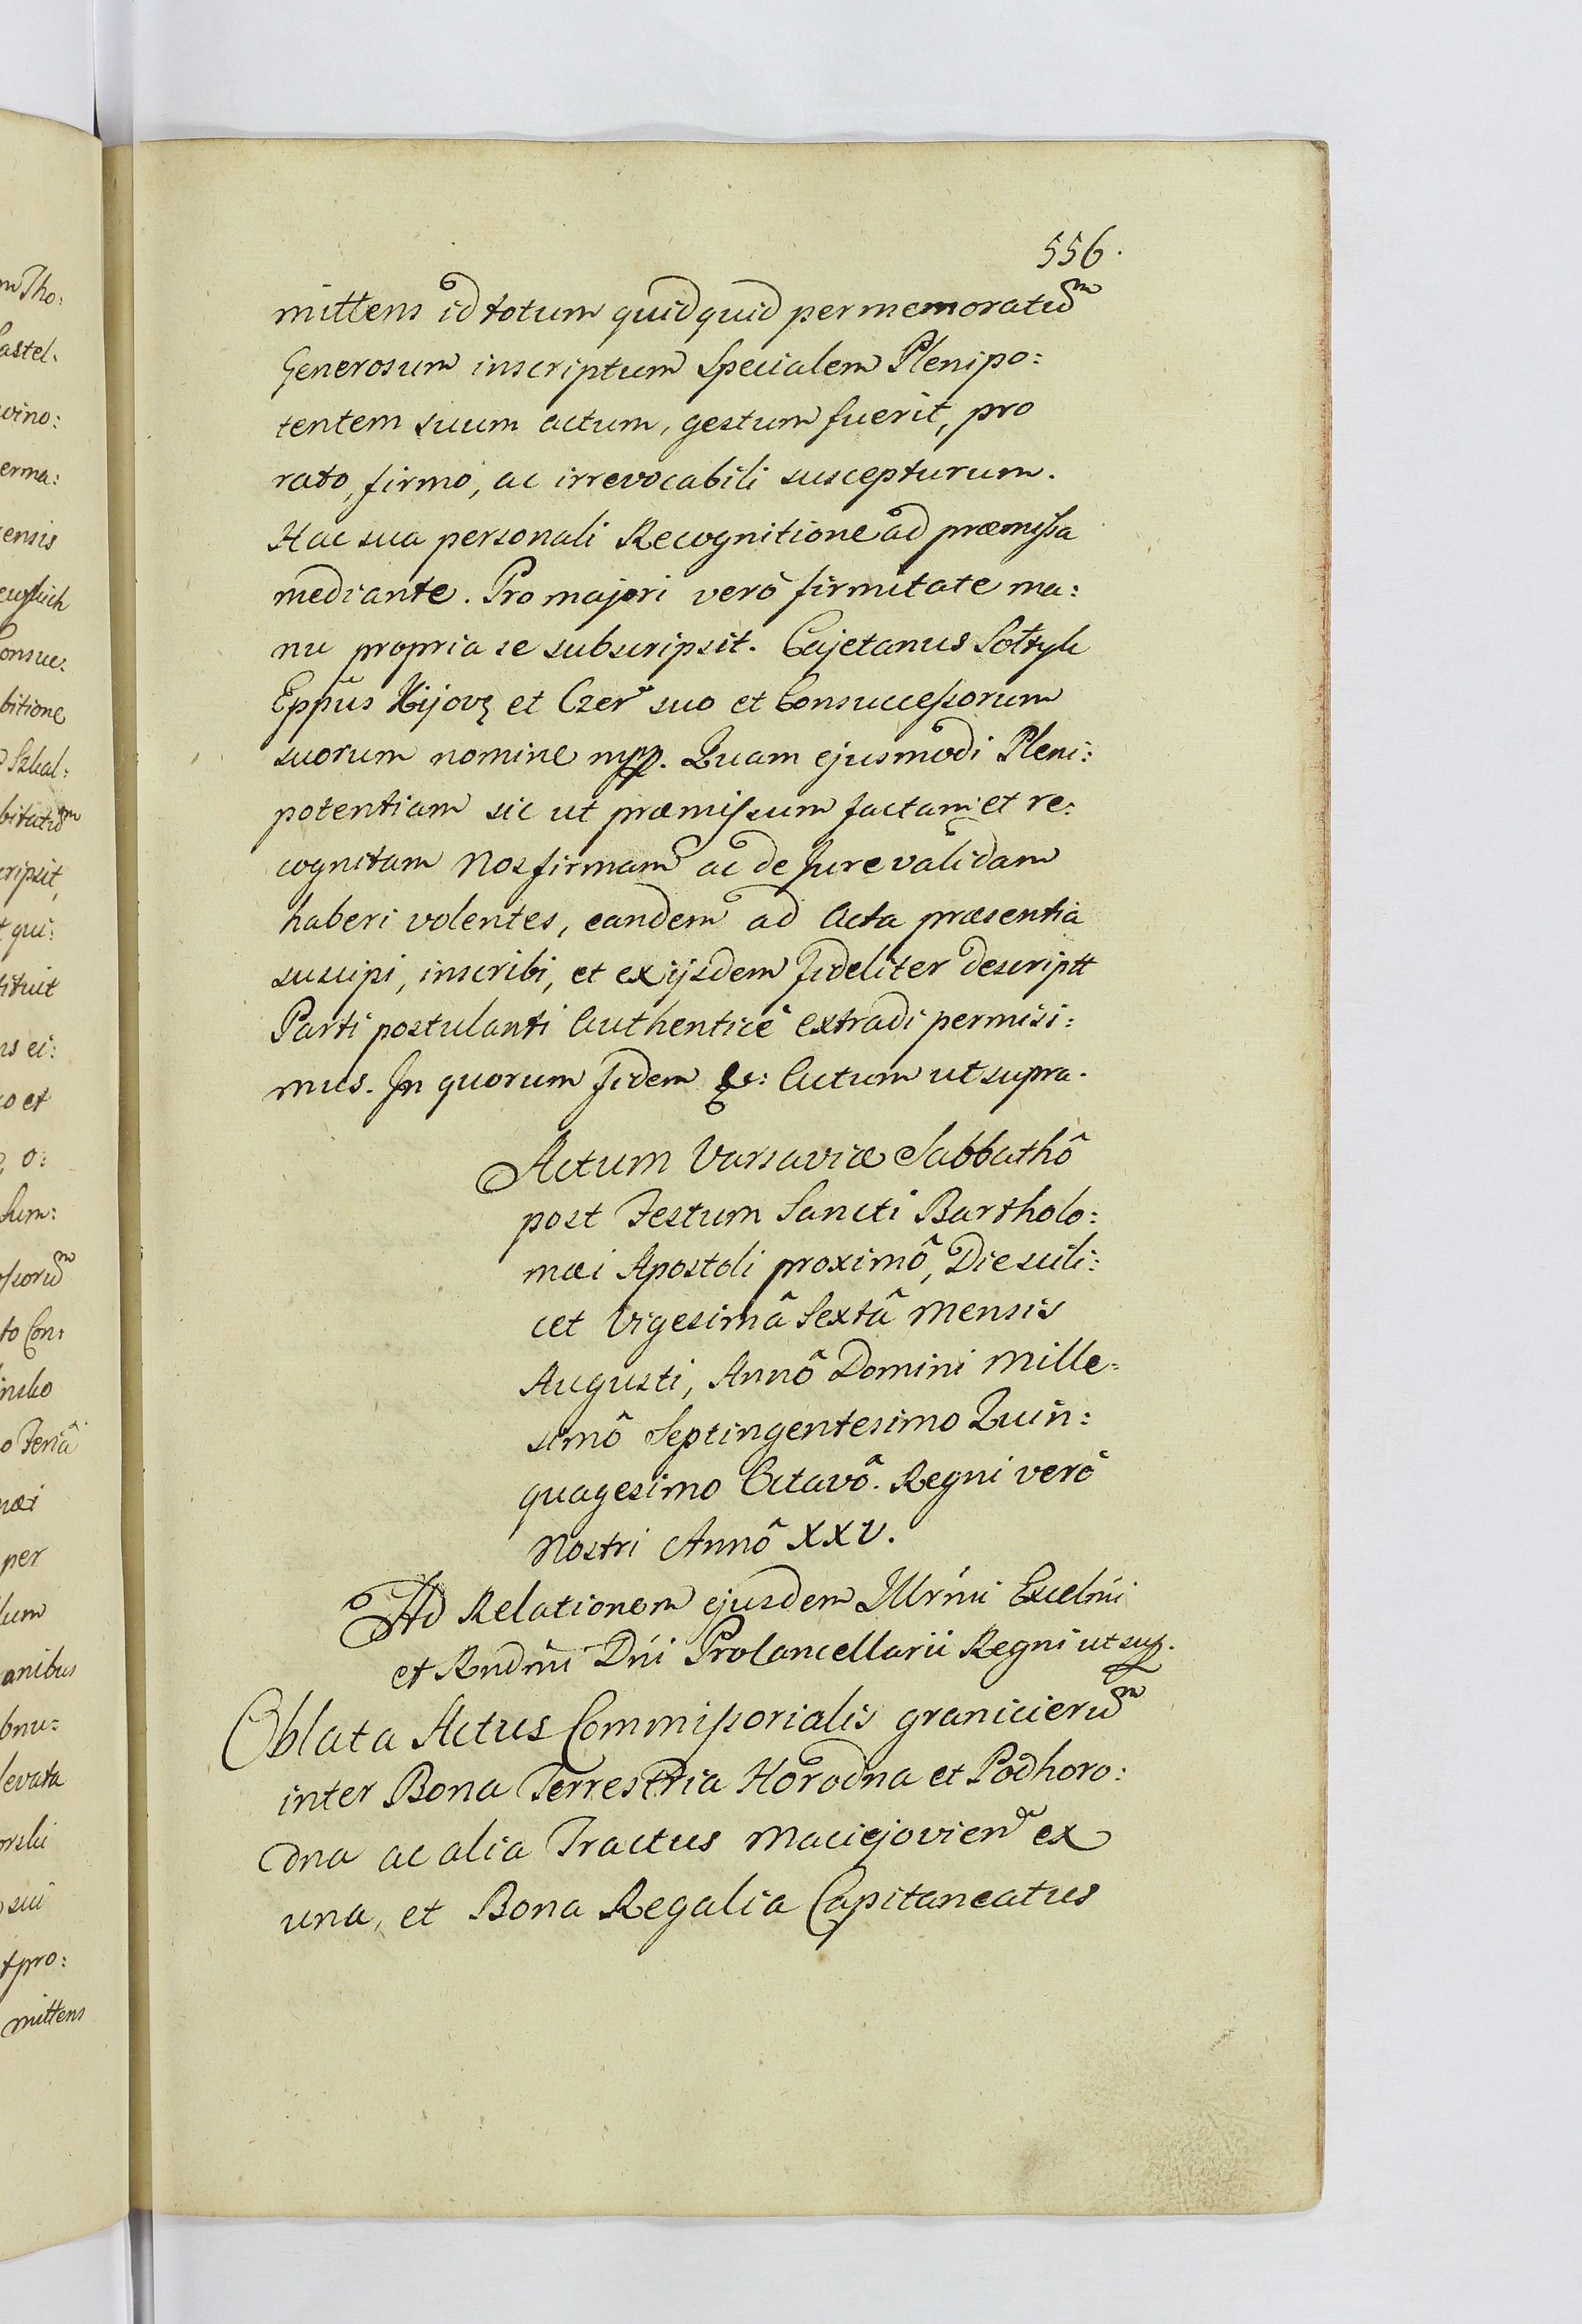 556.
mittens id totum quidquid per memoratũm
Generosum inscriptum Specialem Plenipo:
tentem suum actum, gestum fuerit, pro
rato, firmo, ac irrevocabili suscepturum.
Hac sua personali Recognitione ad præmissa
mediante. Pro majori verò firmitate ma:
nu propria se subscripsit. Cajetanus Sołtyk
Eppũs Kijovę et Czer. suo et Consuccessorum
suorum nomine mpp. Quam ejusmodi Pleni:
potentiam sic ut præmissum factam et re:
cognitam Nos firmam ac de Jure validam
haberi volentes, eandem ad Acta præsentia
suscipi, inscribi, et ex ijsdem fideliter descriptt
Parti postulanti Authenticè extradi permisi:
mus. In quorum fidem &: Actum ut supra.
Actum Varsaviæ Sabbathô
post Festum Sancti Bartholo:
mæi Apostoli proximô, Die scili:
cet Vigesimâ Sextâ Mensis
Augusti, Annô Domini Mille:
simô Septingentesimo Quin:
quagesimo Octavô. Regni verò
Nostri Annô XXV.
Ad Relationem ejusdem Illrmi Excelmi
et Rndmi Dni ProCancellarii Regni ut sup.
Oblata Actus Commissorialis granicierũm
inter Bona Terrestria Horodna et Podhoro:
dna ac alia Tractus Maciejovien ex
una, et Bona Regalia Capitaneatus